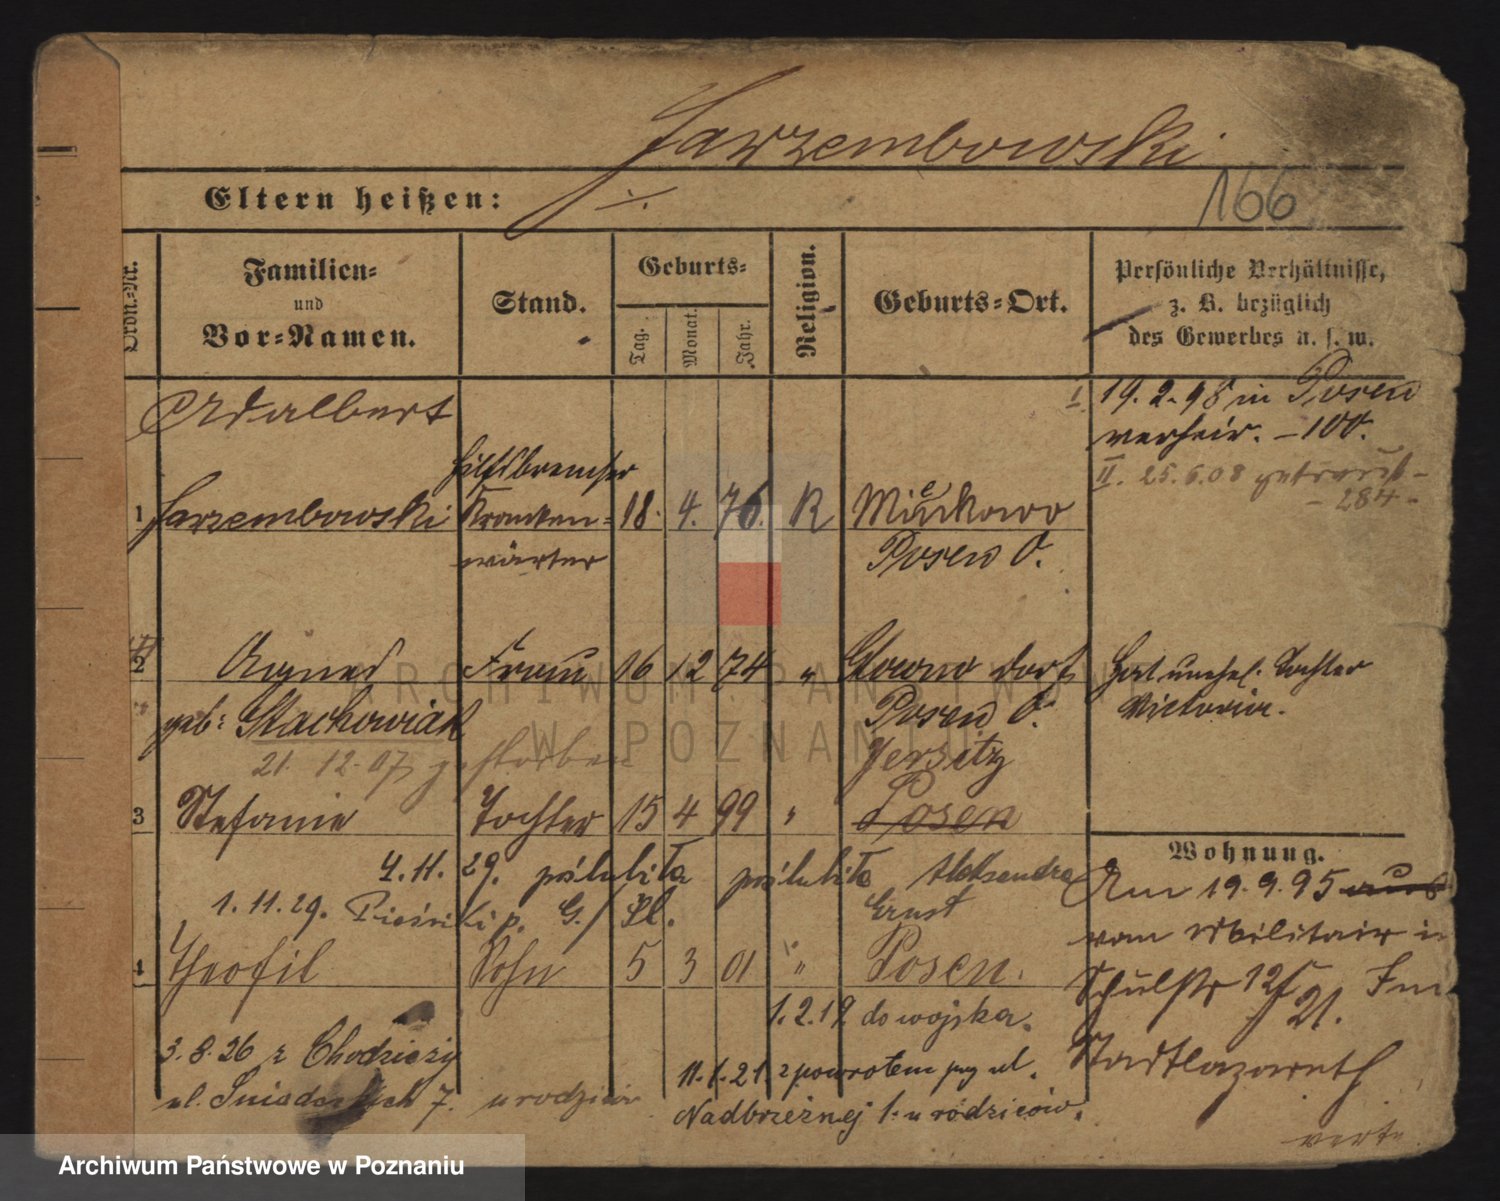 Jarzembowski
Eltern heißen: ./.
166
Ordn.-Nr.
Familien-
und
Vor-Namen.
Stand.
Geburts-
Tag.
Monat.
Jahr.
Religion.
Geburts-Ort.
Persönliche Verhältnisse,
z. B. bezüglich
des Gewerbes u. s. w.
Adalbert
I 19. 2. 98 in Posen
verheir. – 100.
Hilfsbremser
II. 25. 6. 08 – 284 –
1 Jarzembowski Kranken= 18. 4. 76. R
wärter Posen O.
2 Agnes Frau 16 12 74 " Glowno Dorf
Hat unehel. Tochter
Victoria.
geb: Stachowiak Posen O.
21. 12. 07 gestorben Jersitz
3 Stefanie Tochter 15 4 99 " Posen
Wohnung.
4. 11. 29. poślubiła poślubiła Aleksandra
Ernst
1. 11. 29.
Am 19. 9. 95 aus
vom Militair in
Schulstr 12
21.
Stadtlazareth
4 Theofil Sohn 5 3 01 " Posen.
1. 2. 19 do wojska.
3. 8. 26 z Chodzieży
11. 1. 21 z powrotem przy ul.
ul. Śniadeckich 7. u rodziców
Nadbrzeżnej 1. u rodziców.
verte
ARCHIWUM PAŃSTWOWE
W POZNANIU
Archiwum Państwowe w Poznaniu